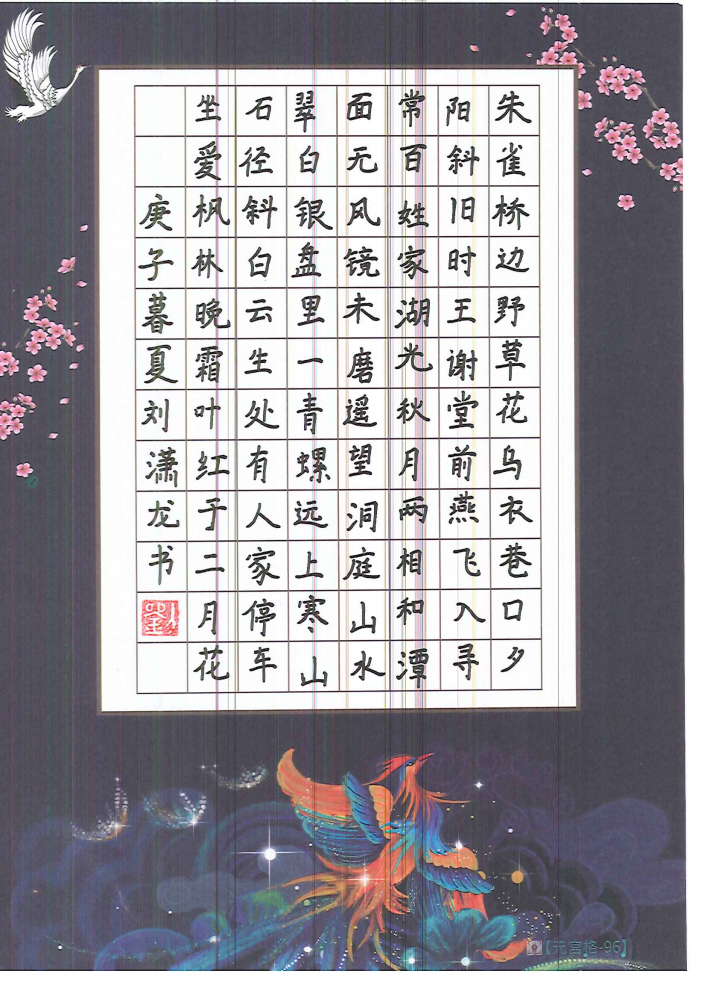 朱雀桥边野草花乌衣巷口夕
阳斜旧时王谢堂前燕飞入寻
常百姓家湖光秋月两相和潭
面无风镜未磨遥望洞庭山水
翠白银盘里一青螺远上寒山
石径斜白云生处有人家停车
坐爱枫林晚霜叶红于二月花
庚子暮夏刘潇龙书
【元宫格-96】